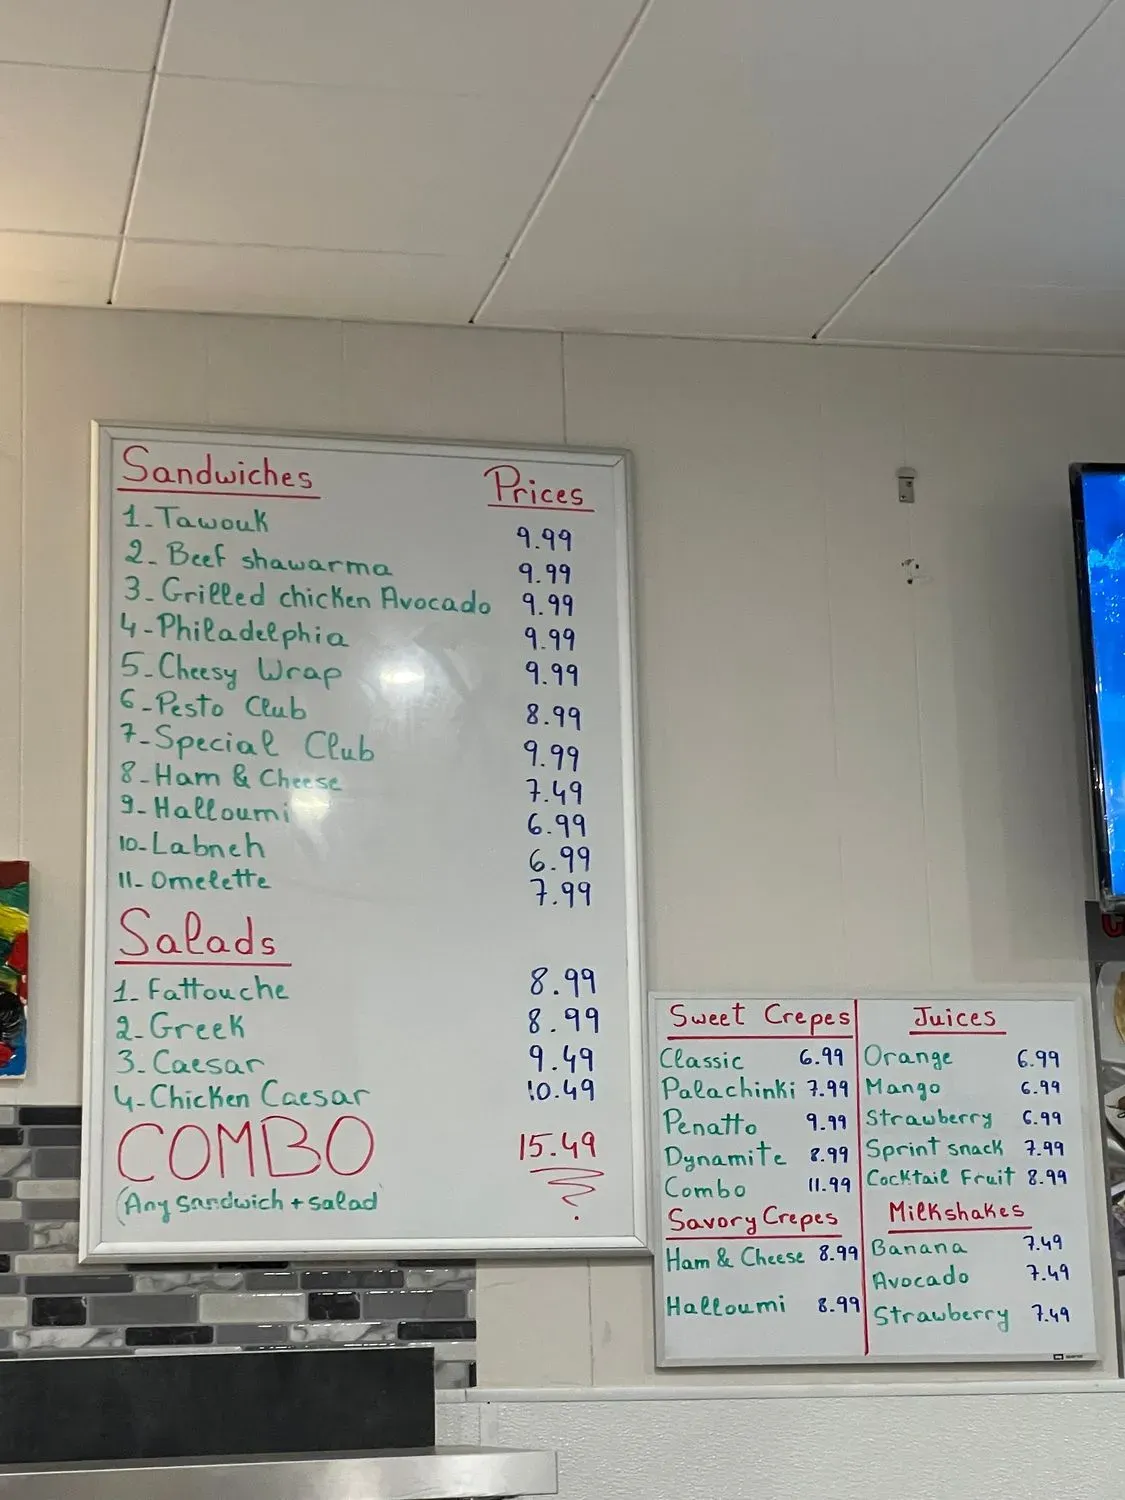 Sandwiches Prices
1-Tawouk 9.99
2-Beef shawarma 9.99
3-Grilled chicken Avocado 9.99
4-Philadelphia 9.99
5-Cheesy Wrap 9.99
6-Pesto Club 8.99
7-Special Club 9.99
8-Ham & Cheese 7.49
9-Halloumi 6.99
10-Labneh 6.99
11-Omelette 7.99
Salads
1-Fattouche 8.99
2-Greek 8.99
3-Caesar 9.49
4-Chicken Caesar 10.49
COMBO 15.49
(Any sandwich + salad)
Sweet Crepes
Classic 6.99
Palachinki 7.99
Penatto 9.99
Dynamite 8.99
Combo 11.99
Savory Crepes
Ham & Cheese 8.99
Halloumi 8.99
Juices
Orange 6.99
Mango 6.99
Strawberry 6.99
Sprint snack 7.99
Cocktail Fruit 8.99
Milkshakes
Banana 7.49
Avocado 7.49
Strawberry 7.49